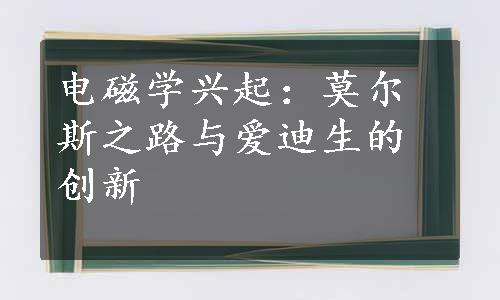 电磁学兴起：莫尔
斯之路与爱迪生的
创新